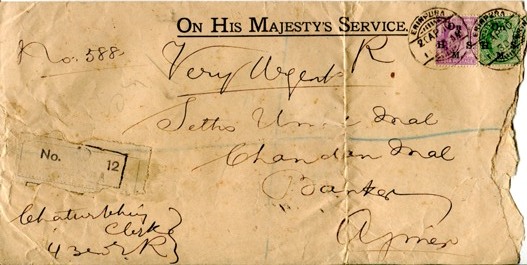 ON HIS MAJESTY'S SERVICE.
No. 588
Very Urgent R
Seths Umed Mal
Chandan Mal
Banker
Ajmer
No. 12
Chaturbhuj
Clerk
ERINPURA
ERINPURA